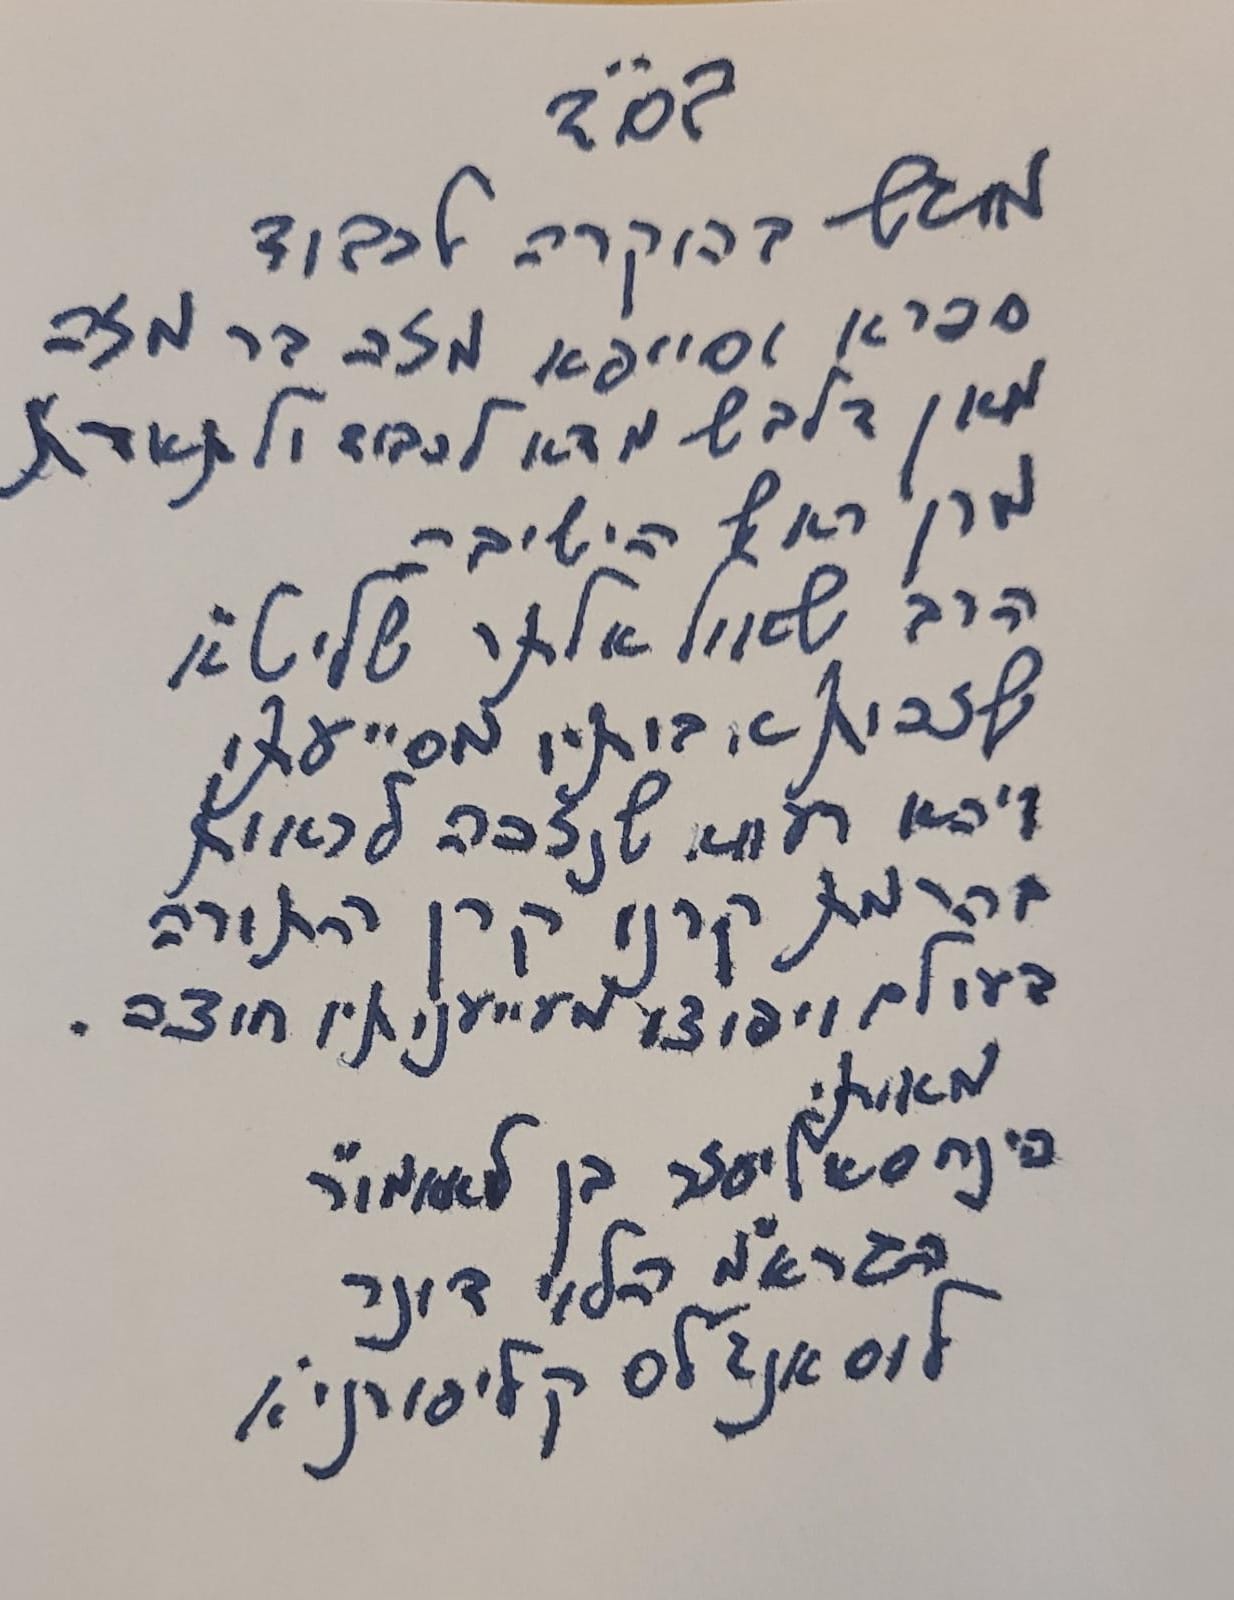 בס"ד
מוגש בהוקרה לכבוד
ספרא וסייפא מזה בר מזה
מאן דלבש מדא לכבוד ולתפארת
מרן ראש הישיבה
הרב שאול אלתר שליט"א
שזכות אבותיו מסייעתו
ויהא רעוא שנזכה לראות
בהרמת קרנו קרן התורה
בעולם ויפוצו מעיינותיו חוצה.
מאותי
פינחס אליעזר בן לאאמו"ר
הגרא"מ הלוי דונר
לוס אנג'לס קליפורני'א